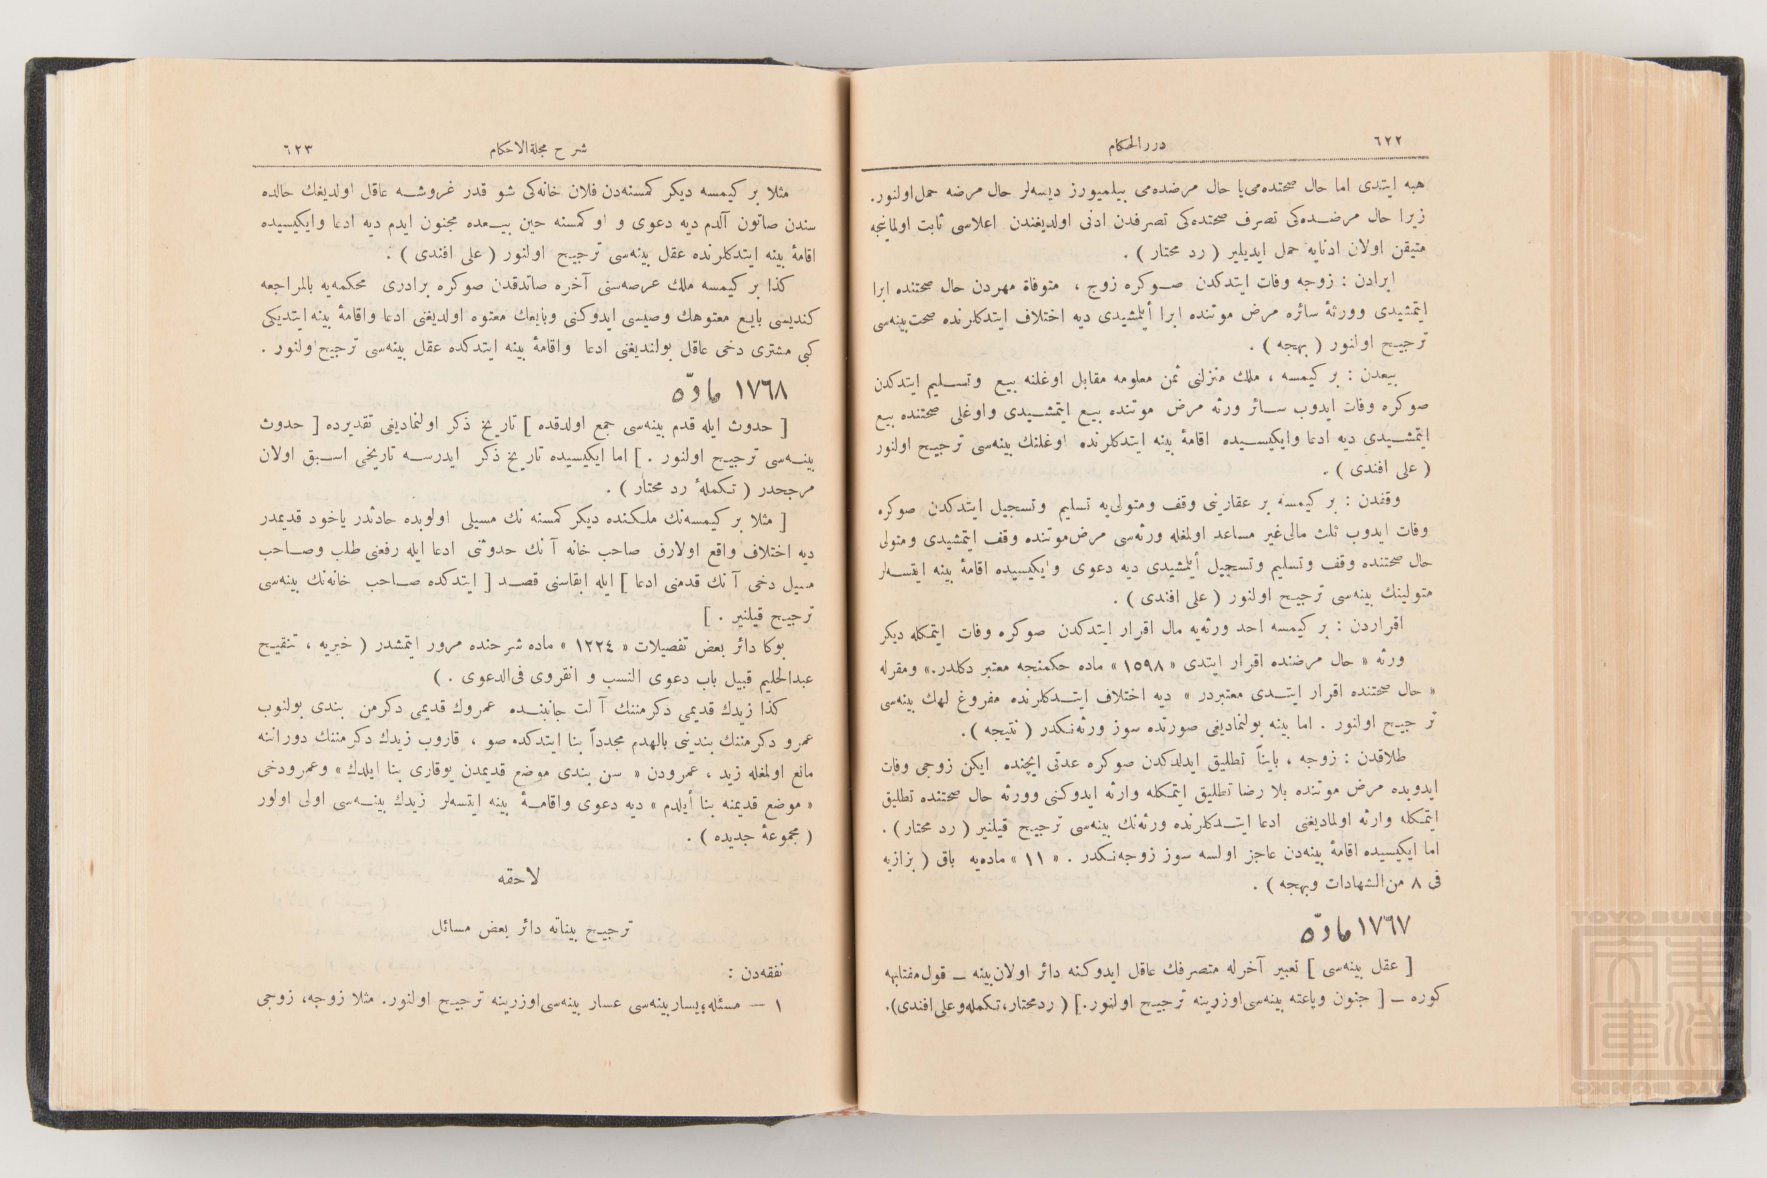 ٦٢٢
دررالحكام
هبه ايتدى اما حال صحتده‌مى‌يا حال مرضده‌مى بيلميورز ديسه‌لر حال مرضه حمل‌اولنور.
زيرا حال مرضده‌كى تصرف صحتده‌كى تصرفدن ادنى اولديغندن اعلاسى ثابت اولماينجه
متيقن اولان ادنايه حمل ايديلير ( رد محتار ) .
ابرادن : زوجه وفات ايتدكدن صوكره زوج ، متوفاة مهردن حال صحتنده ابرا
ايتمشيدى وورثهٔ سائره مرض موتنده ابرا أيلمشيدى ديه اختلاف ايتدكلرنده صحت‌بينه‌سى
ترجيح اولنور ( بهجه ) .
بيعدن : بر كيمسه ، ملك منزلنى ثمن معلومه مقابل اوغلنه بيع وتسليم ايتدكدن
صوكره وفات ايدوب سائر ورثه مرض موتنده بيع ايتمشيدى واوغلى صحتنده بيع
ايتمشيدى ديه ادعا وايكيسيده اقامهٔ بينه ايتدكلرنده اوغلنك بينه‌سى ترجيح اولنور
( على افندى ) .
وقفدن : بر كيمسه بر عقارينى وقف ومتولى‌يه تسليم وتسجيل ايتدكدن صوكره
وفات ايدوب ثلث مالى‌غير مساعد اولمغله ورثه‌سى مرض‌موتنده وقف ايتمشيدى ومتولى
حال صحتنده وقف وتسليم وتسجيل أيلمشيدى ديه دعوى وايكيسيده اقامهٔ بينه ايتسه‌لر
متولينك بينه‌سى ترجيح اولنور ( على افندى ) .
اقراردن : بر كيمسه احد ورثه‌يه مال اقرار ايتدكدن صوكره وفات ايتمكله ديكر
ورثه « حال مرضنده اقرار ايتدى « ١٥٩٨ » ماده حكمنجه معتبر دكلدر.» ومقرله
« حال صحتنده اقرار ايتدى معتبردر » ديه اختلاف ايتدكلرنده مفروغ لهك بينه‌سى
ترجيح اولنور . اما بينه بولنماديغى صورتده سوز ورثه‌نكدر ( نتيجه ) .
طلاقدن : زوجه ، بايناً تطليق ايدلدكدن صوكره عدتى ايچنده ايكن زوجى وفات
ايدوبده مرض موتنده بلا رضا تطليق ايتمكله وارثه ايدوكنى وورثه حال صحتنده تطليق
ايتمكله وارثه اولماديغنى ادعا ايتدكلرنده ورثه‌نك بينه‌سى ترجيح قيلنير ( رد محتار ) .
اما ايكيسيده اقامهٔ بينه‌دن عاجز اولسه سوز زوجه‌نكدر . « ١١ » ماده‌يه باق ( بزازيه
فى ٨ من‌الشهادات وبهجه ) .
١٧٦٧ ماده
[ عقل بينه‌سى ] تعبير آخرله متصرفك عاقل ايدوكنه دائر اولان‌بينه ــ قول‌مفتابهه
كوره ــ [ جنون وياعته بينه‌سى‌اوزرينه ترجيح اولنور.] ( ردمحتار،تكمله‌وعلى‌افندى).
شرح مجلةالاحكام
٦٢٣
مثلا بر كيمسه ديكر كمسنه‌دن فلان خانه‌كى شو قدر غروشه عاقل اولديغك حالده
سندن صاتون آلدم ديه دعوى و اوكمسنه حين بيعده مجنون ايدم ديه ادعا وايكيسيده
اقامهٔ بينه ايتدكلرنده عقل بينه‌سى ترجيح اولنور ( على افندى ) .
كذا بر كيمسه ملك عرصه‌سنى آخره صاتدقدن صوكره برادرى محكمه‌يه بالمراجعه
كنديسى بايع معتوهك وصيسى ايدوكنى وبايعك معتوه اولديغنى ادعا واقامهٔ بينه‌ايتديكى
كبى مشترى دخى عاقل بولنديغنى ادعا واقامهٔ بينه ايتدكده عقل بينه‌سى ترجيح‌اولنور .
١٧٦٨ ماده
[ حدوث ايله قدم بينه‌سى جمع اولدقده ] تاريخ ذكر اولنماديغى تقديرده [ حدوث
بينه‌سى ترجيح اولنور . ] اما ايكيسيده تاريخ ذكر ايدرسه تاريخى اسبق اولان
مرجحدر ( تكملهٔ رد محتار ) .
[ مثلا بر كيمسه‌نك ملكنده ديكر كمسنه نك مسيلى اولوبده حادثدر ياخود قديمدر
ديه اختلاف واقع اولارق صاحب خانه آنك حدوثنى ادعا ايله رفعنى طلب وصاحب
مسيل دخى آنك قدمنى ادعا ] ايله ابقاسنى قصد [ ايتدكده صاحب خانه‌نك بينه‌سى
ترجيح قيلنير . ]
بوكا دائر بعض تفصيلات « ١٢٢٤ » ماده شرحنده مرور ايتمشدر ( خيريه ، تنقيح
عبدالحليم قبيل باب دعوى النسب و انقروى فى‌الدعوى . )
كذا زيدك قديمى دكرمننك آلت جانبنده عمروك قديمى دكرمن بندى بولنوب
عمرو دكرمننك بندينى بالهدم مجدداً بنا ايتدكده صو ، قاروب زيدك دكرمننك دوراننه
مانع اولمغله زيد ، عمرودن « سن بندى موضع قديمدن يوقارى بنا ايلدك » وعمرودخى
« موضع قديمنه بنا أيلدم » ديه دعوى واقامهٔ بينه ايتسه‌لر زيدك بينه‌سى اولى اولور
( مجموعهٔ جديده ) .
لاحقه
ترجيح بيناته دائر بعض مسائل
نفقه‌دن :
١ — مسئله؛يساربينه‌سى عسار بينه‌سى‌اوزرينه ترجيح اولنور. مثلا زوجه، زوجى
TOYO BUNKO
東洋文庫
TOYO BUNKO